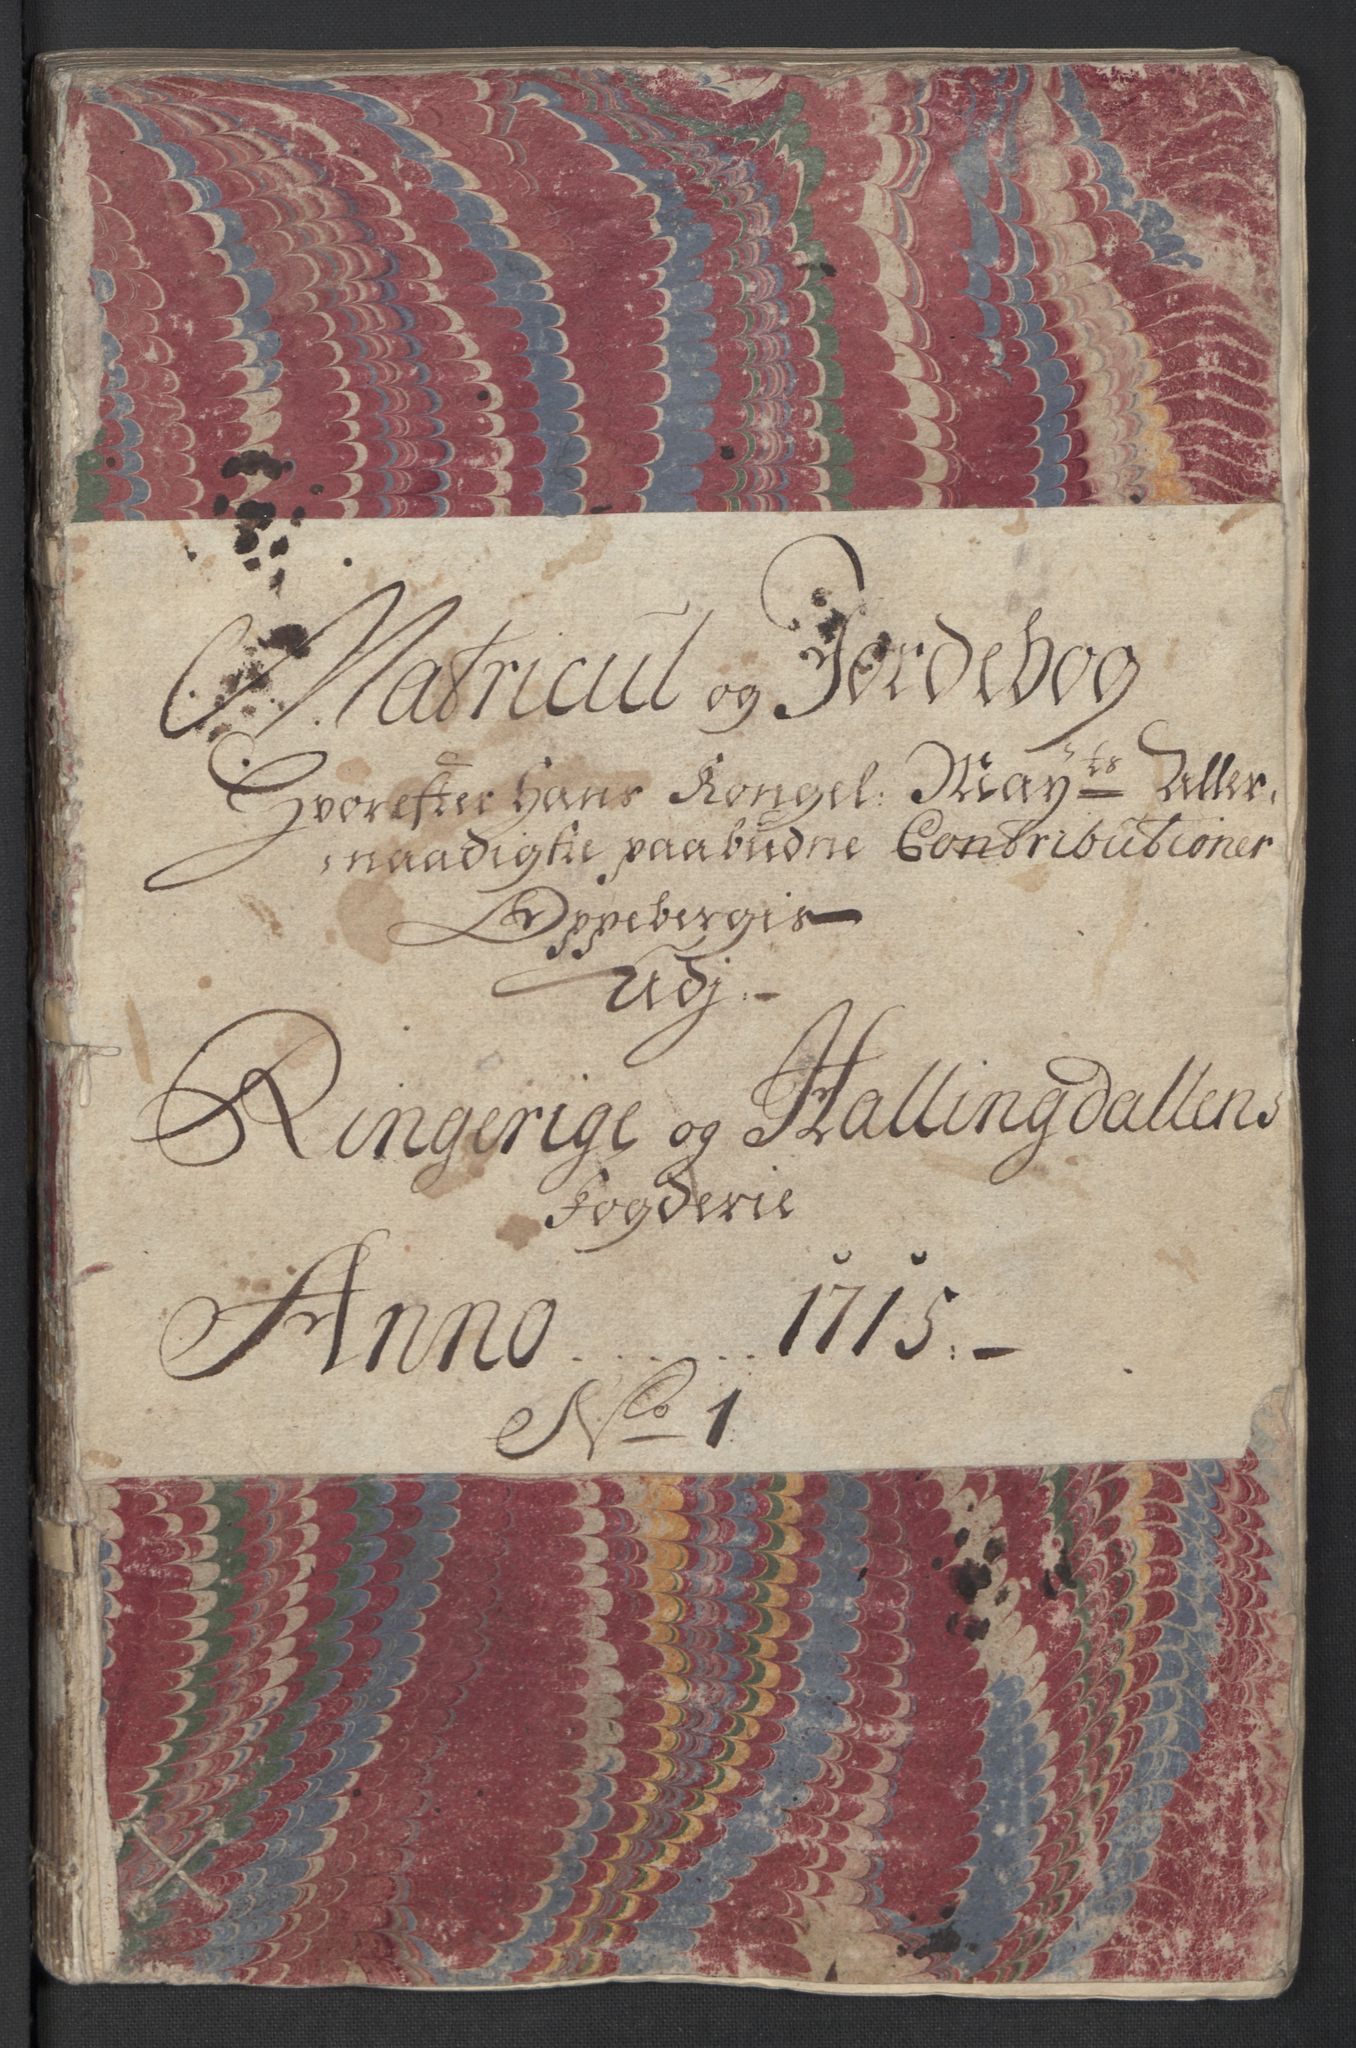 Matricul og Jordebog
Hvorefter Hans Kongel: May:ts Aller,
naadigste paabudne Contributioner
Oppebergis
Udj:
Ringerige og Hallingdallens
Fogderie
Anno . . . . . . 1715:
No 1